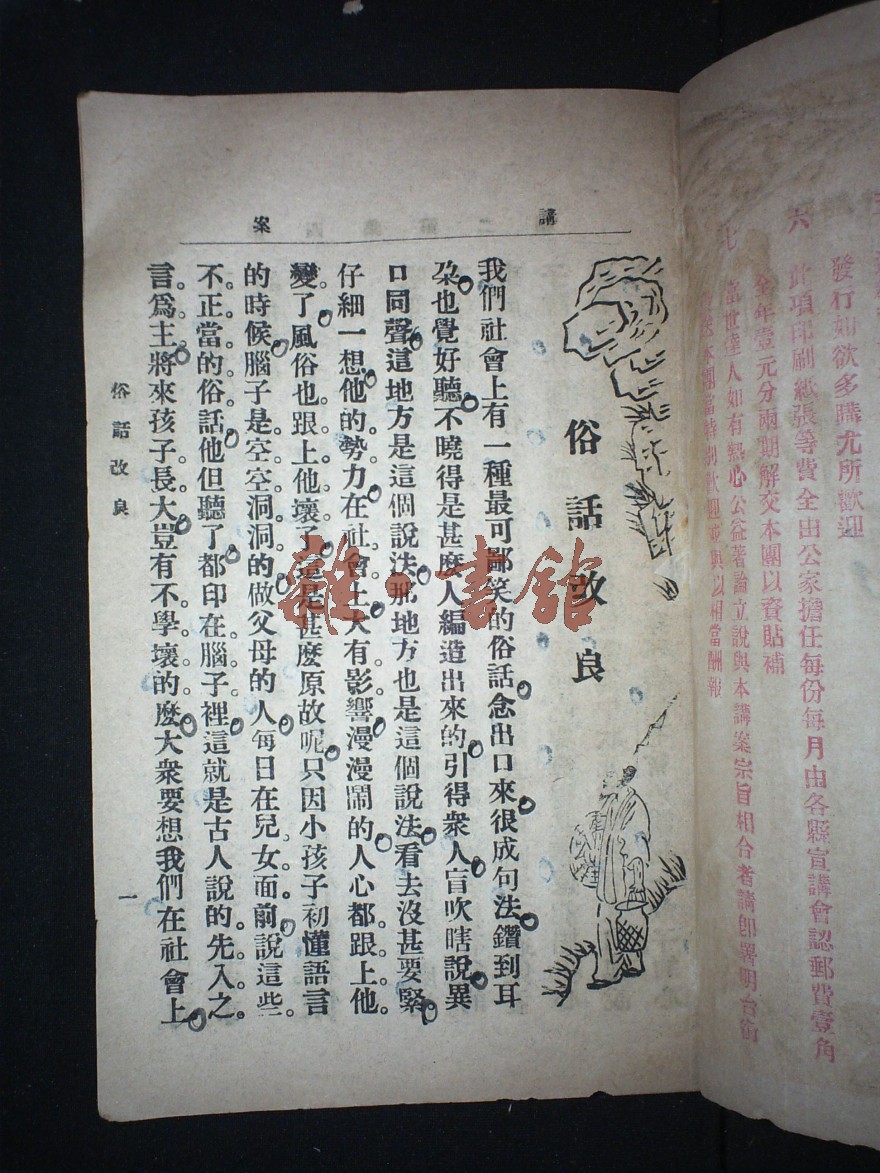 發行如欲多購尤所歡迎
六　此項印刷紙張等費全由公家擔任每份每月由各縣宣講會認郵費壹角
全年壹元分兩期解交本團以資貼補
七　當世達人如有熱心公益著論立說與本講案宗旨相合者請卽署明台銜
本團當特別歡迎並與以相當酬報
講
案
俗話改良
我們社會上有一種最可鄙笑的俗話念出口來很成句法鑽到耳
朶也覺好聽不曉得是甚麽人編造出來的引得衆人盲吹瞎說異
口同聲這地方是這個說法那地方也是這個說法看去沒甚要緊
仔細一想他的勢力在社會上大有影響漫漫鬧的人心都跟上他
變了風俗也跟上他壞了這是甚麽原故呢只因小孩子初懂語言
的時候腦子是空空洞洞的做父母的人每日在兒女面前說這些
不正當的俗話他但聽了都印在腦子裡這就是古人說的先入之
言爲主將來孩子長大豈有不學壞的麽大衆要想我們在社會上
俗話改良
一
雜·書館